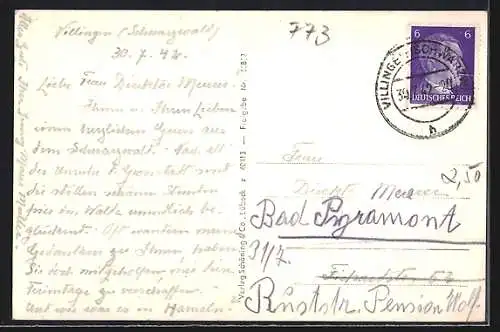 Villingen (Schwarzwald)
30.7.42.
Liebe Frau Direktor
Ihnen u. Ihren Lieben
einen herzlichen Gruss aus
dem Schwarzwald. Nach all
der Unruhe d. Grosstadt sind
die stillen schönen Stunden
hier im Walde unendlich be-
glückend. Oft wandern meine
Gedanken zu Ihnen, haben
Sie doch mitgeholfen, mir diese
Ferientage zu verschaffen.
Und wie war es in Hameln
773
6 6
DEUTSCHES REICH
VILLINGEN (SCHWARZW)
h
Verlag Schöning & Co., Lübeck
Frau
Direktor
2,50
Bad Pyramont
31/7.
Rüststr. Pension Wolf.